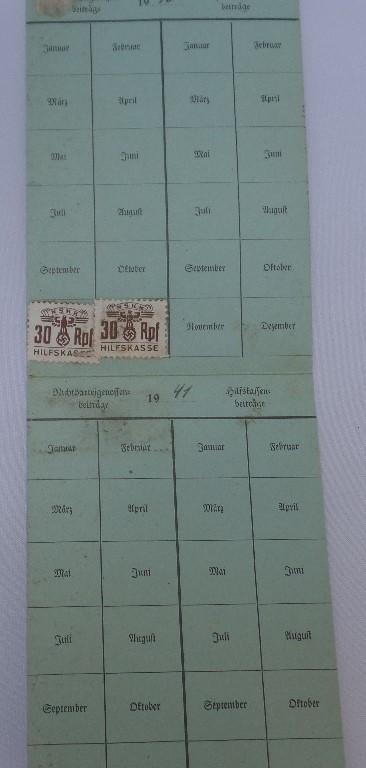 beiträge 19 beiträge
Januar Februar Januar Februar
März April März April
Mai Juni Mai Juni
Juli August Juli August
September Oktober September Oktober
NSKK NSKK
30 Rpf 30 Rpf November Dezember
HILFSKASSE HILFSKASSE
Nichtparteigenossen- 19 41 Hilfskassen-
beiträge beiträge
Januar Februar Januar Februar
März April März April
Mai Juni Mai Juni
Juli August Juli August
September Oktober September Oktober